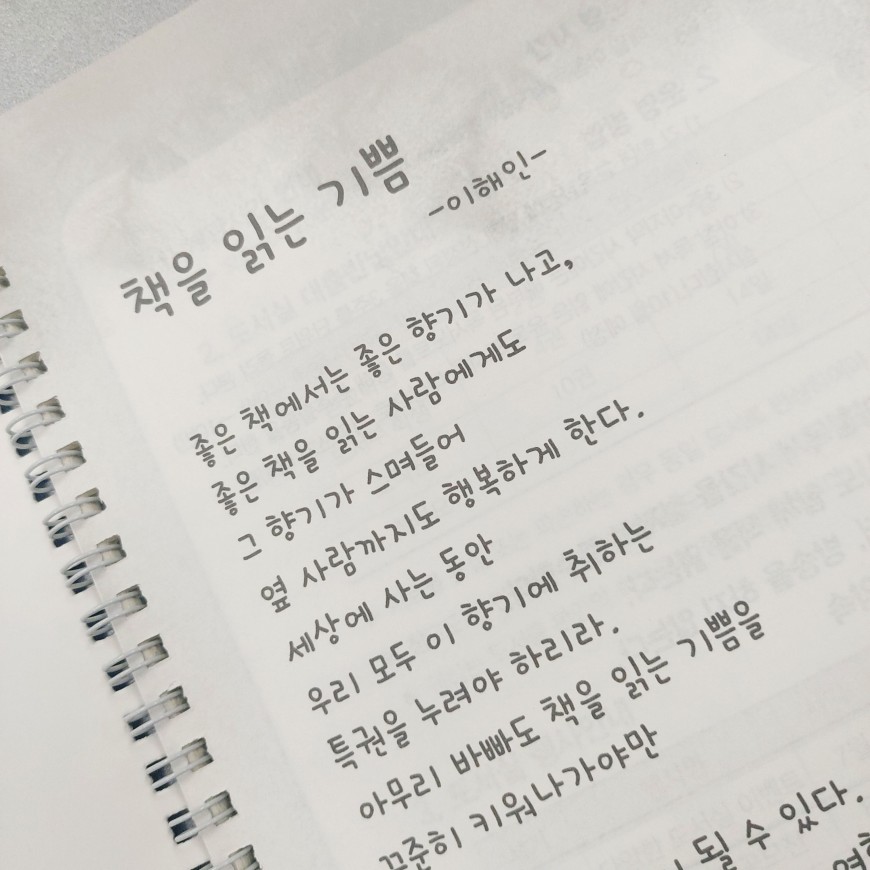 책을 읽는 기쁨
-이해인-
좋은 책에서는 좋은 향기가 나고,
좋은 책을 읽는 사람에게도
그 향기가 스며들어
옆 사람까지도 행복하게 한다.
세상에 사는 동안
우리 모두 이 향기에 취하는
특권을 누려야 하리라.
아무리 바빠도 책을 읽는 기쁨을
꾸준히 키워나가야만
될 수 있다.